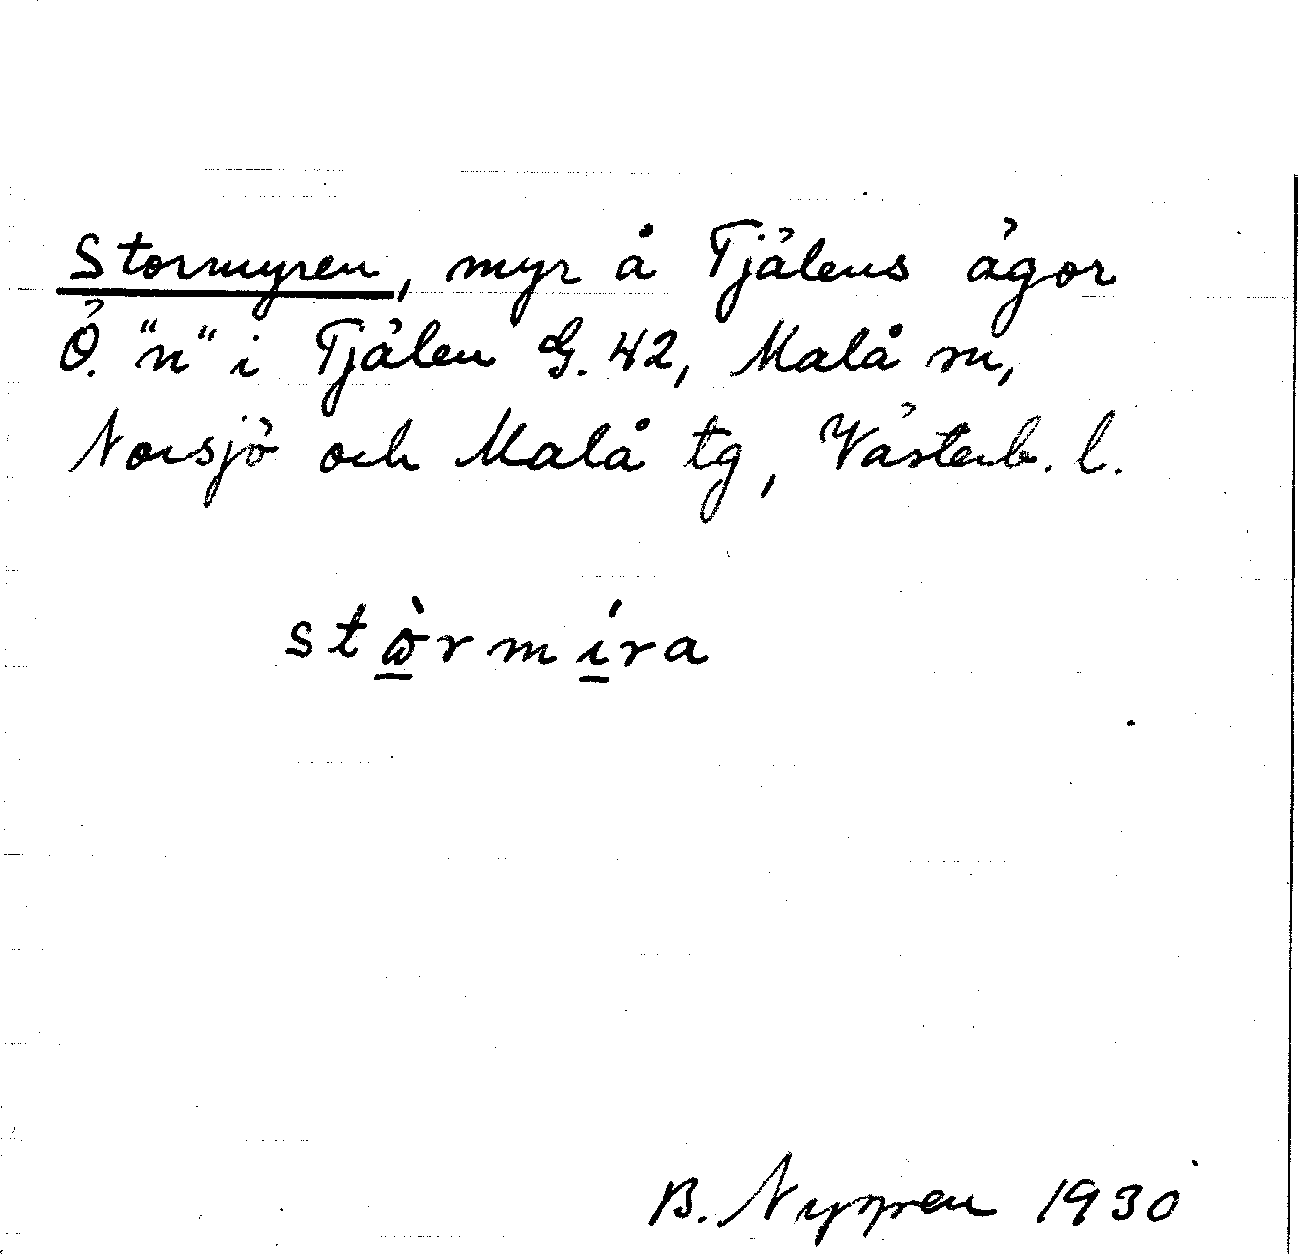 Stormyren, myr å Tjälens ägor
Ö. "n" i Tjälen G. 42, Malå sn,
Norsjö och Malå tg, Västerb. l.
stòrmíra
B. 1930